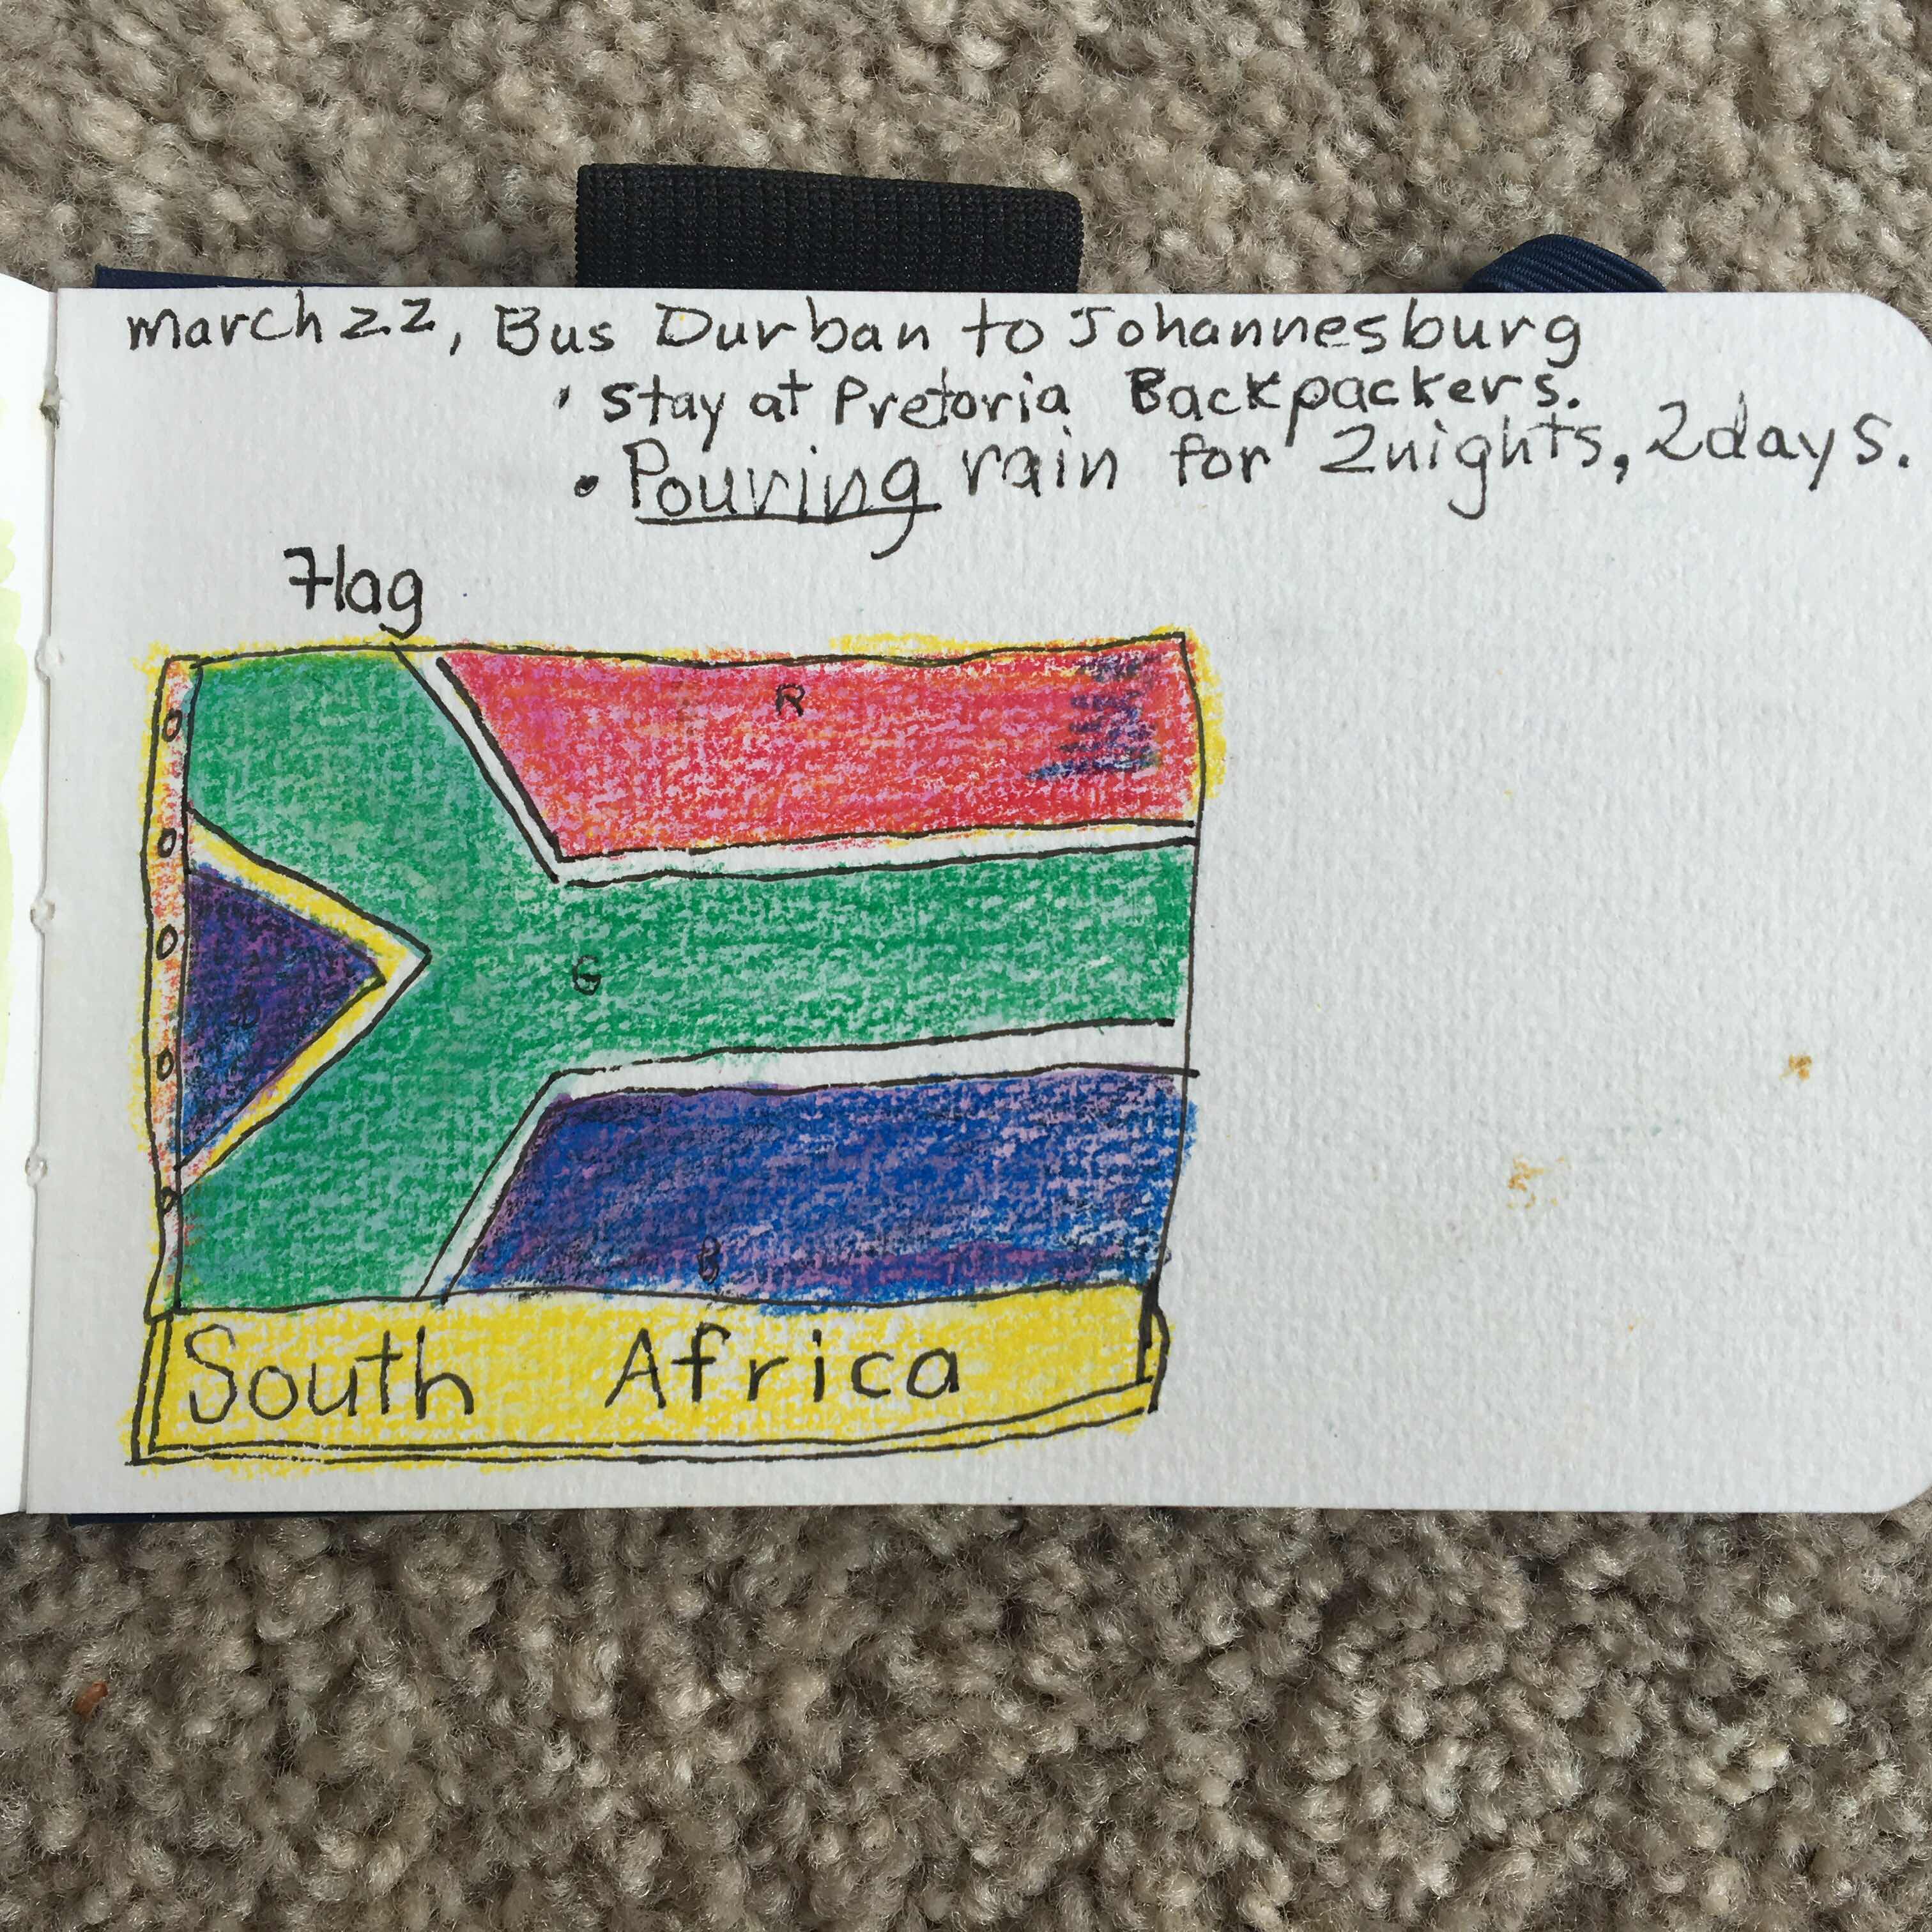 march 22, Bus Durban to Johannesburg
• stay at Pretoria Backpackers.
• Pouring rain for 2 nights, 2 days.
Flag
R
G
B
B
South Africa